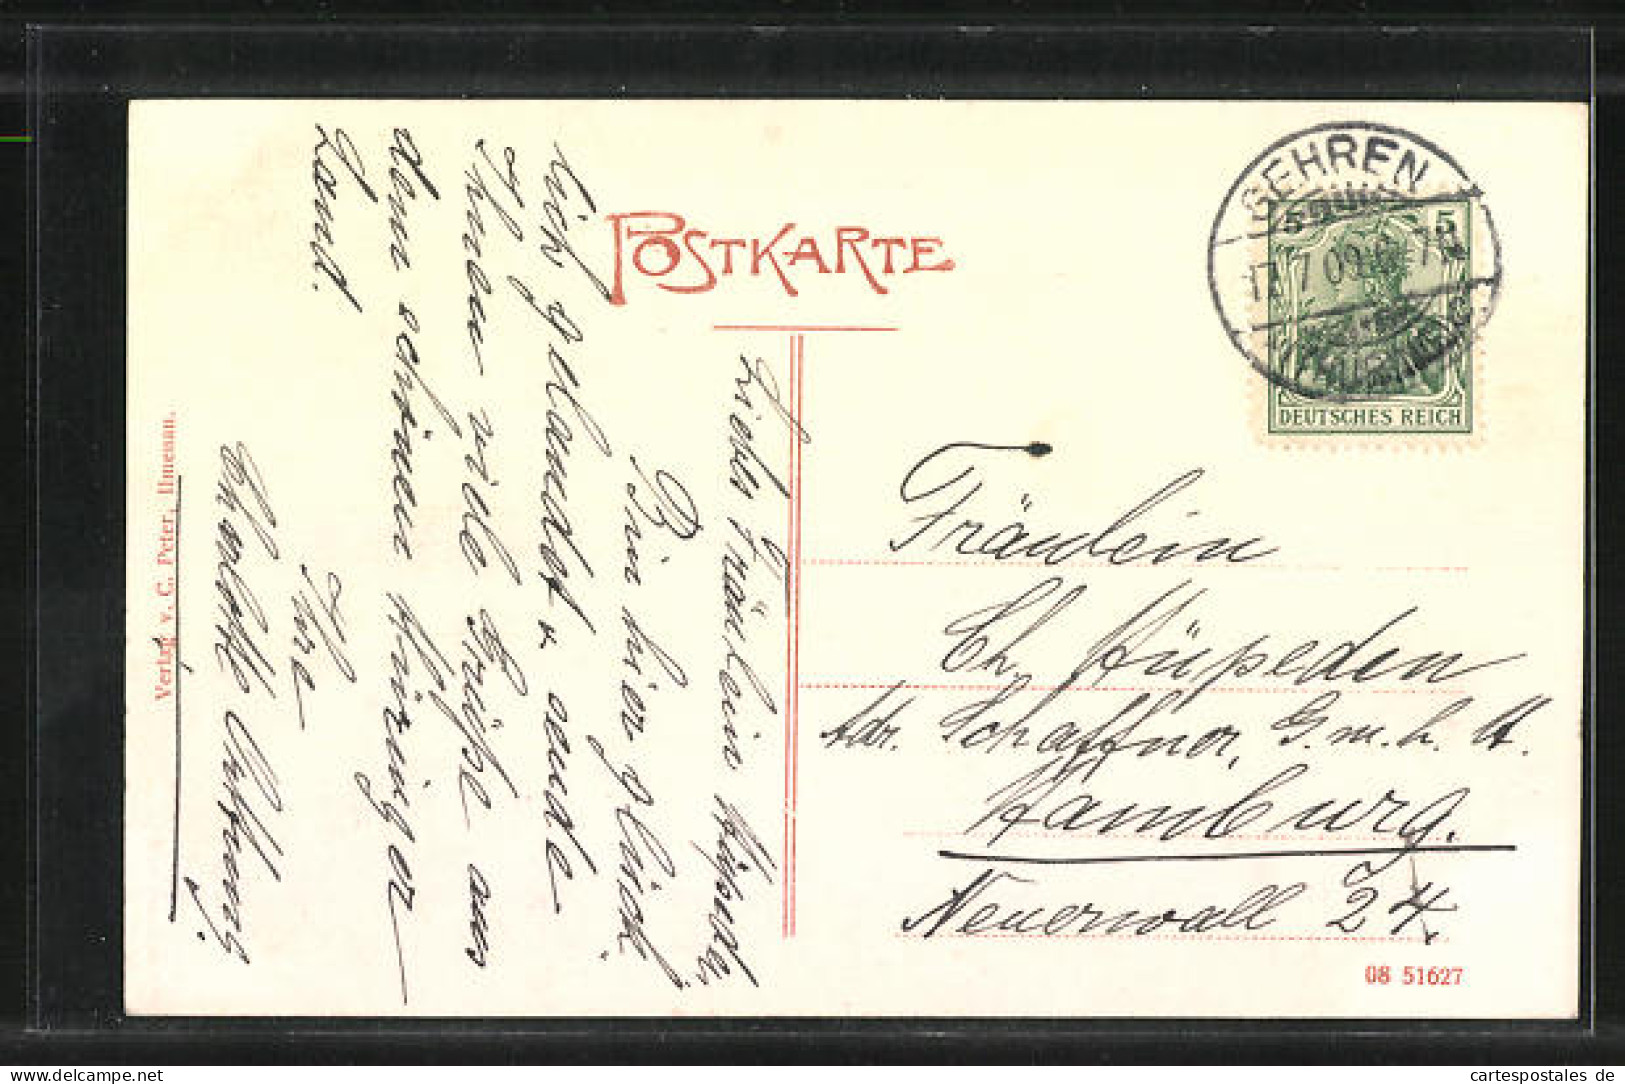 POSTKARTE
GEHREN
17.7.09.6-7N.
5 5
DEUTSCHES REICH
Liebes Fräulein Hüpeden,
Bin hier glück-
lich gelandet u. sende
Ihnen viele Grüße aus
dem schönen Thüringer
Land.
Ihre
Charlotte
Fräulein
Ch. Hüpeden
Adr. Schaffner, G.m.b.H.
Hamburg.
Neuerwall 24.
08 51627
Verlag v. C. Peter, Ilmenau.
www.cartespostales.de